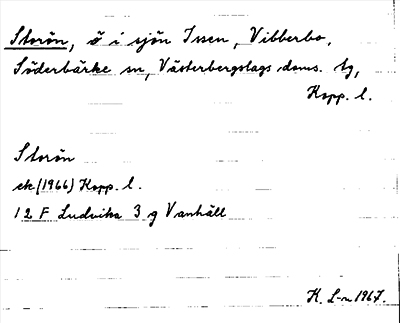 Storön, ö i sjön Issen, Vibberbo,
Söderbärke sn, Västerbergslags doms. tg,
Kopp. l.
Storön
ek (1966) Kopp. l.
12 F Ludvika 3 g Vanhäll
K. L-n 1967.